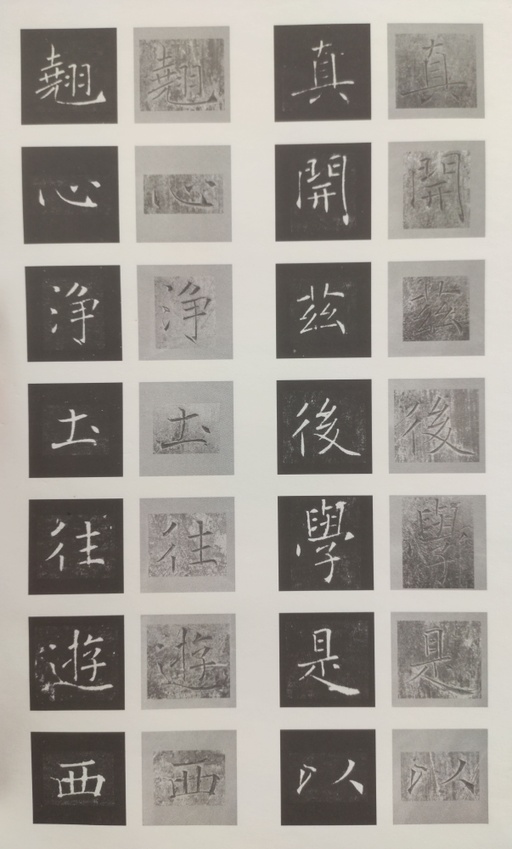 真開兹後學是以
真開兹後學是以
翹心浄土往遊西
翹心浄土往遊西